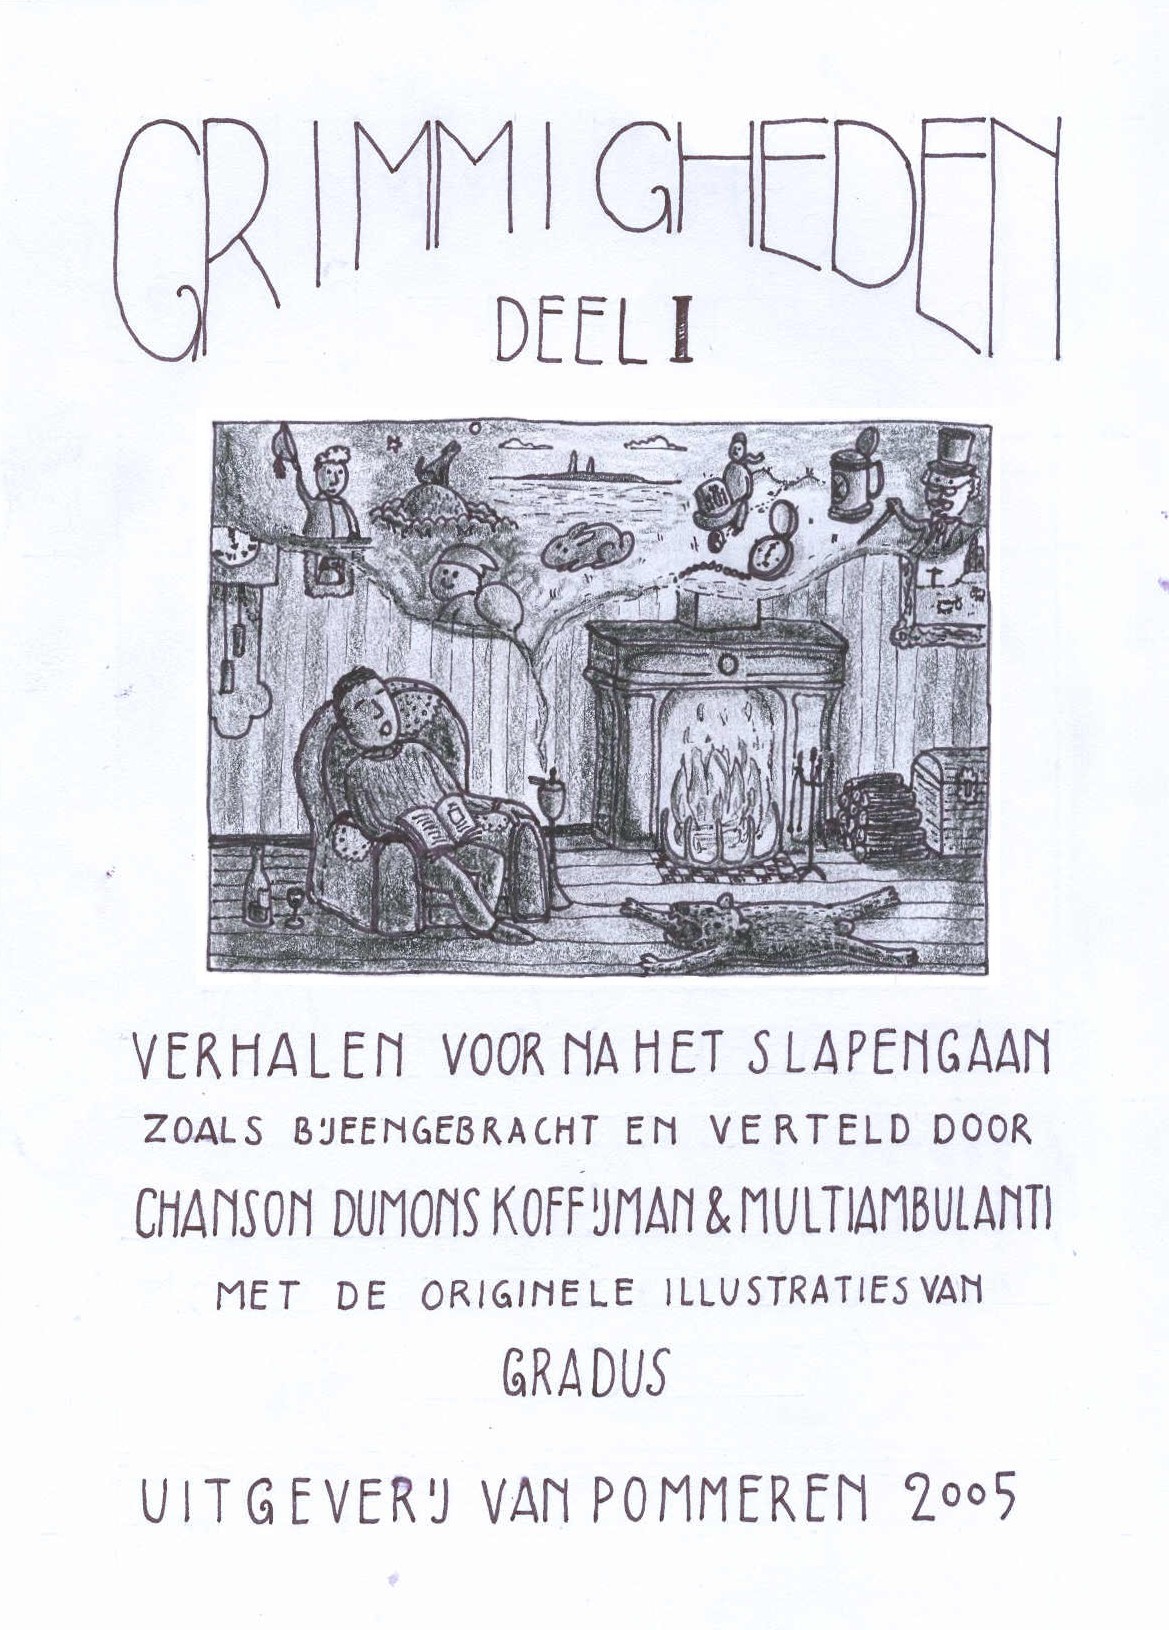 GRIMMIGHEDEN
DEEL I
VERHALEN VOOR NA HET SLAPENGAAN
ZOALS BIJEENGEBRACHT EN VERTELD DOOR
CHANSON DUMONS KOFFIJMAN & MULTIAMBULANTI
MET DE ORIGINELE ILLUSTRATIES VAN
GRADUS
UITGEVERIJ VAN POMMEREN 2005